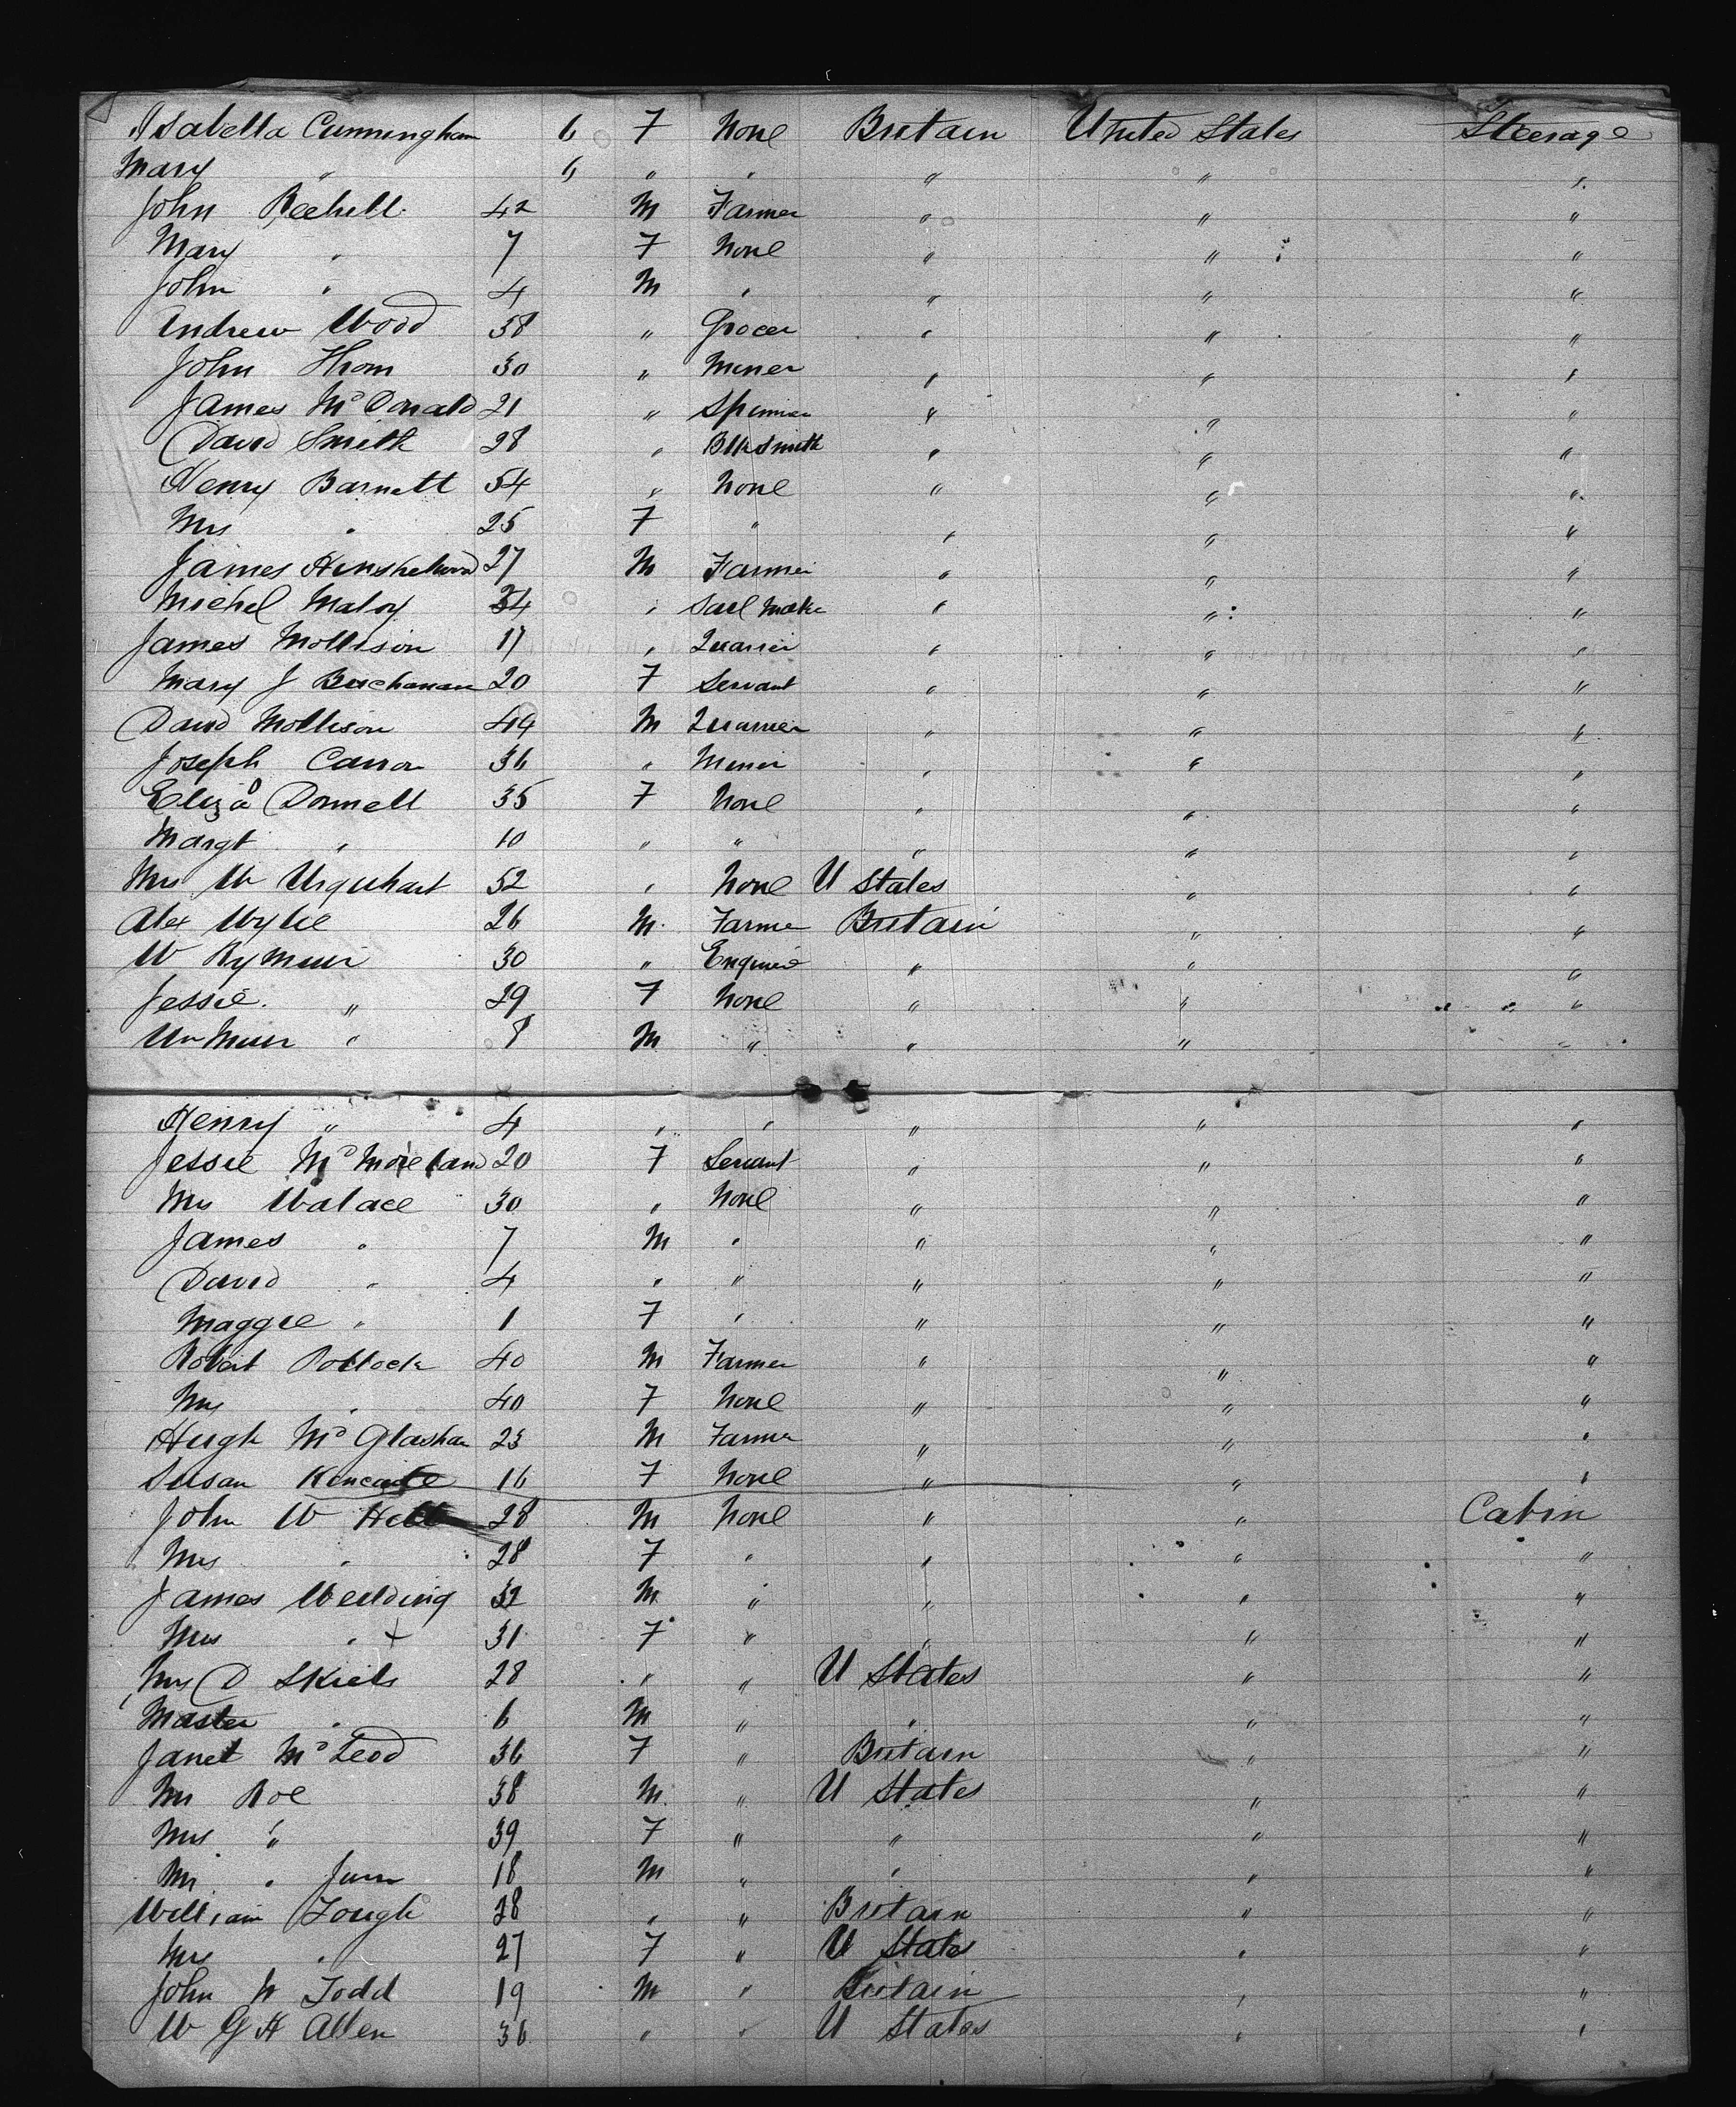 Isabella Cunningham 6 F None Britain United States Steerage
Mary " 6 " " " " "
John 42 M Farmer " " "
Mary " 7 F None " " "
John " 4 M " " " "
Andrew Wood 38 " Grocer " " "
John Thom 30 " Miner " " "
James McDonald 21 " Spinner " " "
David Smith 28 " Blksmith " " "
Henry Barnett 54 " None " " "
Mrs " 25 F " " " "
James Hinshelwood 27 M Farmer " " "
Michel Maloy 34 " Sail Maker " " "
James Mollison 17 " Quarrier " " "
Mary J Buchanan 20 F Servant " " "
David Mollison 49 M Quarrier " " "
Joseph Carron 36 " Miner " " "
Eliza O Donnell 35 F None " " "
Margt " 10 " " " " "
Mrs W Urquhart 52 " None U States " "
Alex Wylie 26 M Farmer Britain " "
W Rymuir 30 " Engineer " " "
Jessie " 29 F None " " "
Wm Muir " 8 M " " " "
Henry " 4 " " " " "
Jessie McMoreland 20 F Servant " " "
Mrs Walace 30 " None " " "
James " 7 M " " " "
David " 4 " " " " "
Maggie " 1 F " " " "
Robert Pollock 40 M Farmer " " "
Mrs " 40 F None " " "
Hugh McGlashan 23 M Farmer " " "
Susan Kincade 16 F None " " "
John W Hill 28 M None " " Cabin
Mrs " 28 F " " " "
James Wedding 32 M " " " "
Mrs " + 31 F " " " "
Mrs D 28 " " U States " "
Master " 6 M " " " "
Janet McLeod 36 F " Britain " "
Mr Roe 38 M " U States " "
Mrs " 39 F " " " "
Mr " Junr 18 M " " " "
William Tough 28 " " Britain " "
Mrs " 27 F " U States " "
John W Todd 19 M " Britain " "
W G H Allen 36 " " U States " "